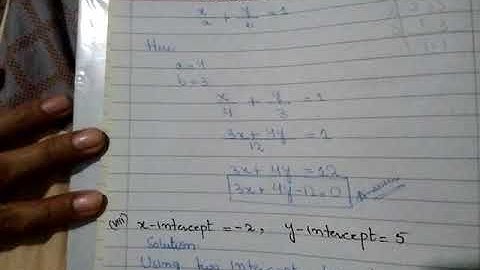 x/a + y/a = 1
Here
a = 4
b = 3
x/4 + y/3 = 1
3x + 4y / 12 = 1
3x + 4y = 12
3x + 4y - 12 = 0
(viii) x-intercept = -2, y-intercept = 5
Solution
Using two intercept